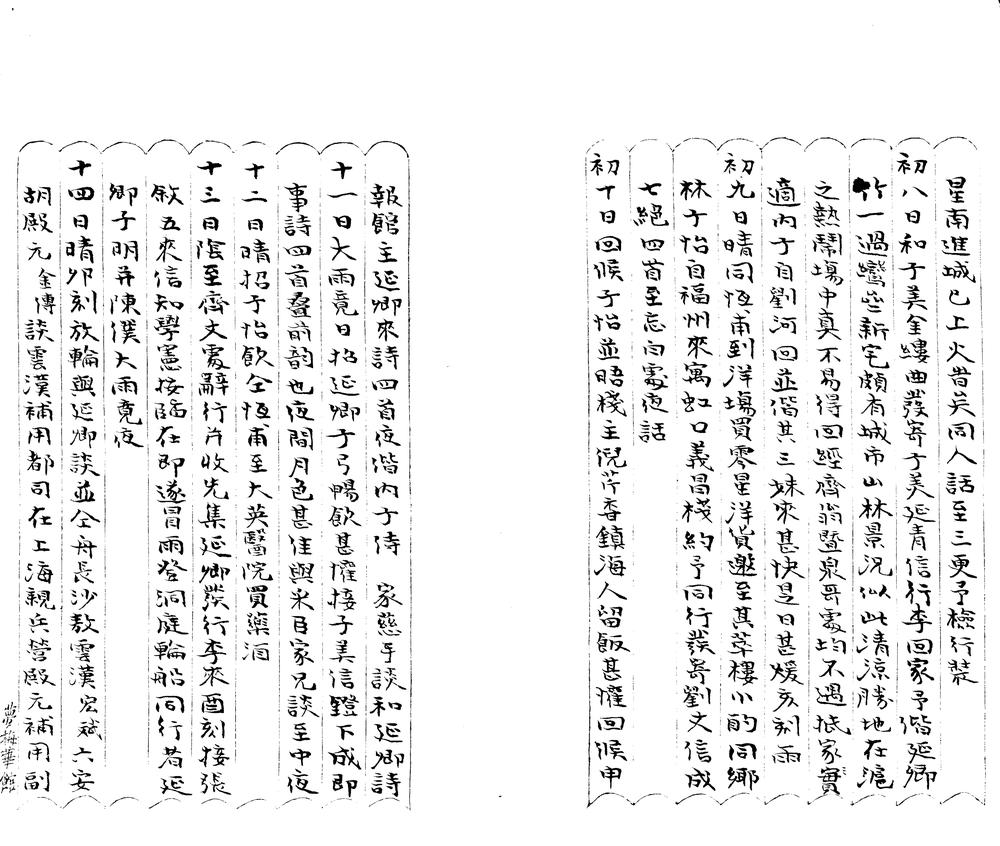 星南進城已上火昔矣同人話至三更予檢行裝
初八日和子美金縷曲發寄子美延青信行李回家予偕延卿
竹一過蠻些新宅頗有城市山林景況似此清涼勝地在滬
之熱鬧場中真不易得回經齊翁暨泉哥處均不遇抵家寶
適內子自劉河回並偕其三妹來甚快是日甚煖亥刻雨
初九日晴同恆甫到洋場買零星洋貨邀至其萃樓小酌同鄉
林子怡自福州來寓虹口義昌棧約予同行發寄劉文信成
七絕四首至忘向處夜話
初十日回候子怡並晤棧主倪芹香鎮海人留飯甚懽回候申
報館主延卿來詩四首夜偕內子侍 家慈手談和延卿詩
十一日大雨竟日招延卿子弓暢飲甚懽接子美信鐙下成即
事詩四首疊前韵也夜間月色甚佳與米臣家兄談至中夜
十二日晴招子怡飲仝恆甫至大英醫院買藥酒
十三日陰至齊文處辭行并收先集延卿發行李來酉刻接張
敘五來信知學憲按臨在即遂冒雨登洞庭輪船同行者延
卿子明并陳僕大雨竟夜
十四日晴卯刻放輪與延卿談並仝舟長沙敖雲漢宏斌六安
胡殿元金傳談雲漢補用都司在上海親兵營殿元補用副
夢梅華館